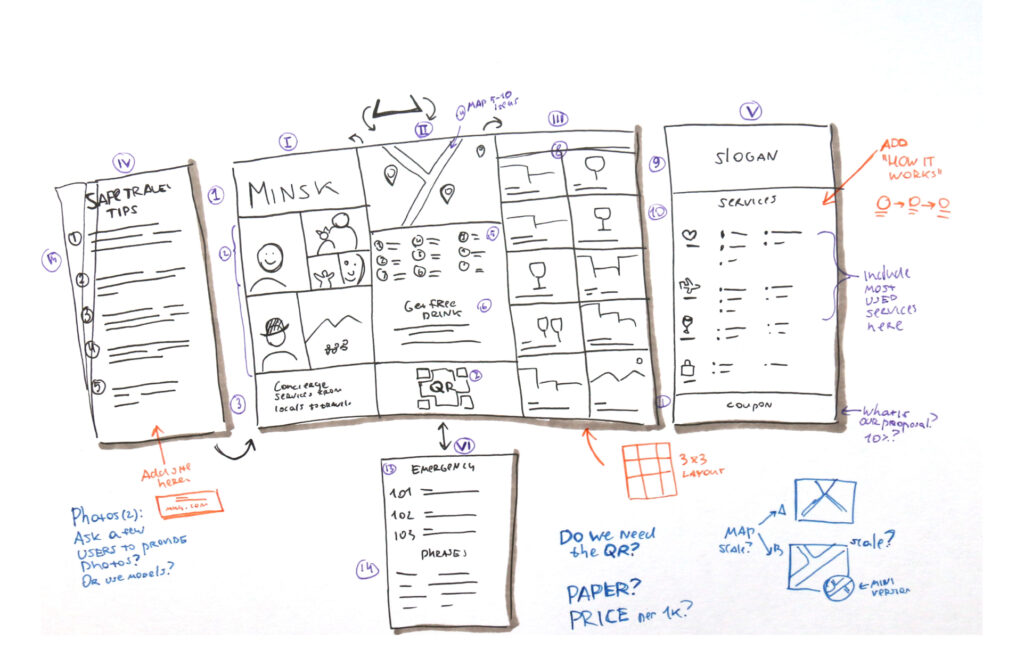 IV
SAFE TRAVEL
TIPS
1
2
3
4
5
Add site
here
Photos(2):
Ask a few
USERS TO PROVIDE
Photos?
Or use models?
I
1
MINSK
2
3
Concierge
services from
locals to travel
II
MAP 5-10
Get free
DRINK
6
QR
III
8
3x3
LAYOUT
V
9
SLOGAN
10
SERVICES
COUPON
ADD
"HOW IT
WORKS"
Include
MOST
USED
SERVICES
here
What is
our proposal?
10%?
VI
13
EMERGENCY
101
102
103
PHRASES
14
Do we need
the QR?
PAPER?
PRICE per 1K?
MAP
scale?
A
B
scale?
MINI
VERSION